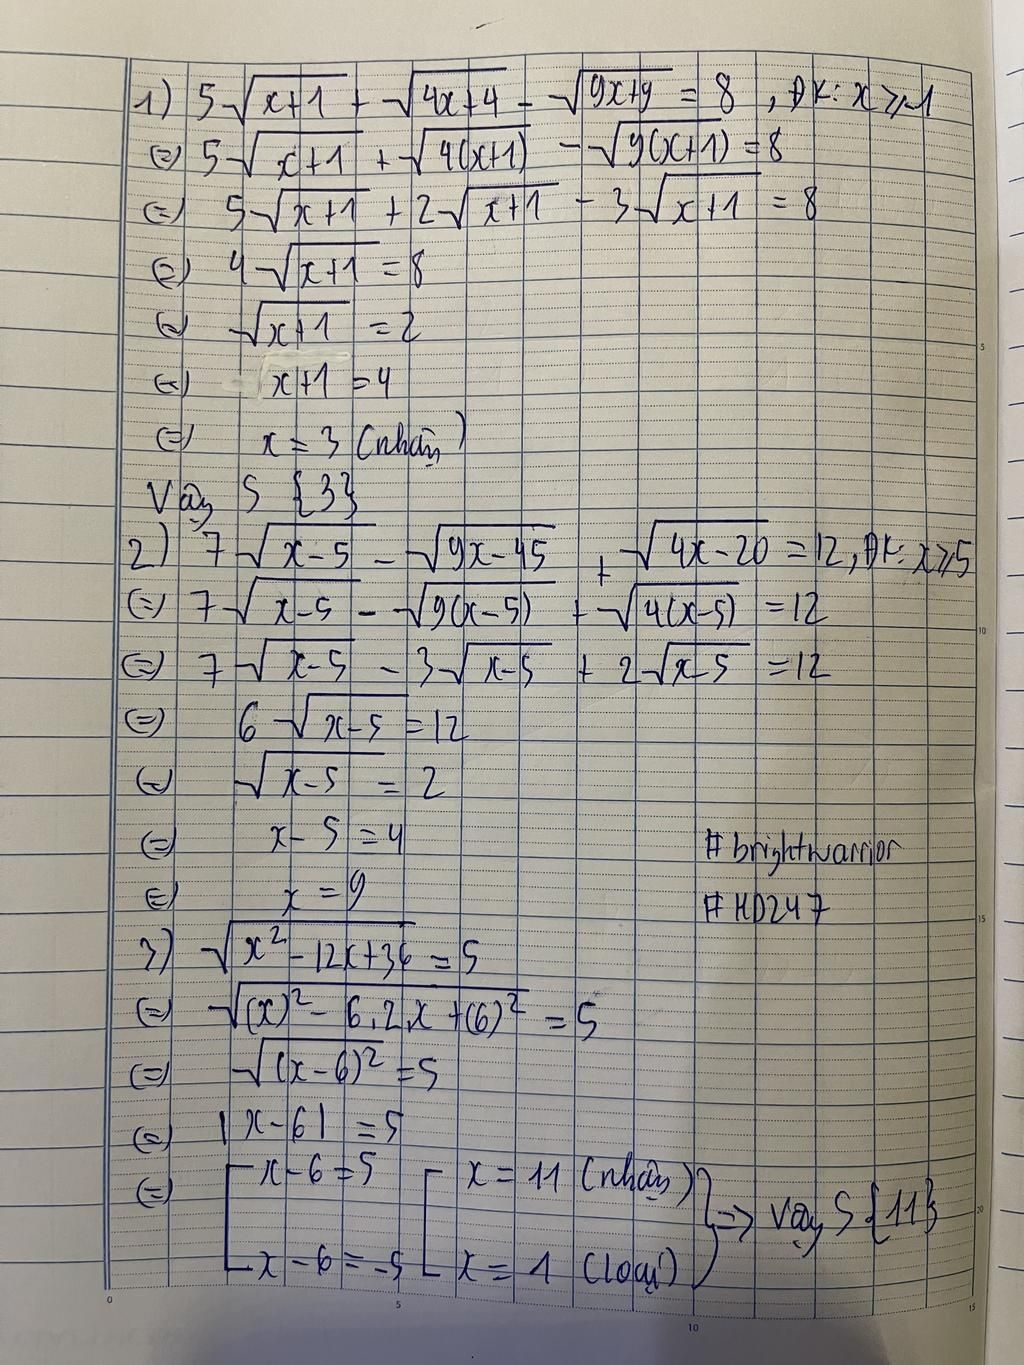 1) 5√(x+1) + √(4x+4) - √(9x+9) = 8 , ĐK: x ≥ -1
(=) 5√(x+1) + √(4(x+1)) - √(9(x+1)) = 8
(=) 5√(x+1) + 2√(x+1) - 3√(x+1) = 8
(=) 4√(x+1) = 8
(=) √(x+1) = 2
(=) x+1 = 4
(=) x = 3 (nhận)
Vậy S {3}
2) 7√(x-5) - √(9x-45) + √(4x-20) = 12, ĐK: x ≥ 5
(=) 7√(x-5) - √(9(x-5)) + √(4(x-5)) = 12
(=) 7√(x-5) - 3√(x-5) + 2√(x-5) = 12
(=) 6√(x-5) = 12
(=) √(x-5) = 2
(=) x - 5 = 4
(=) x = 9
#brightwarrior
#HD247
3) √(x² - 12x + 36) = 5
(=) √((x)² - 6.2.x + (6)²) = 5
(=) √((x-6)²) = 5
(=) |x-6| = 5
(=) [ x-6 = 5 [ x = 11 (nhận) } => Vậy S {11}
[ x-6 = -5 [ x = 1 (loại)
5
10
15
20
0 5 10 15